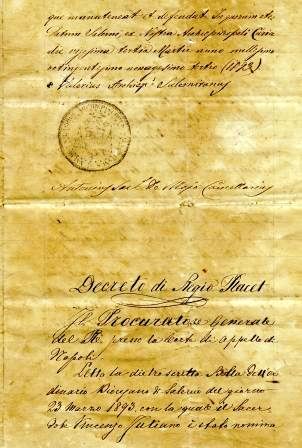 que manuteneat et defendat. In quorum etc
Datum Salerni, ex Nostra Archiepiscopali Curia
die vigesima tertia Martii anno millesimo
octingentesimo nonagesimo tertio (1893)
Valerius Archiep. Salernitanus
Antonius Sac. De Cancellarius
Decreto di Regio Placet
Il Procuratore Generale
del Re presso la Corte di Appello di
Napoli
Letta la dietroscritta Bolla dell'Or
dinario Diocesano di Salerno del giorno
23 Marzo 1893, con la quale il Sacer
dote Vincenzo Giuliano è stato nomina